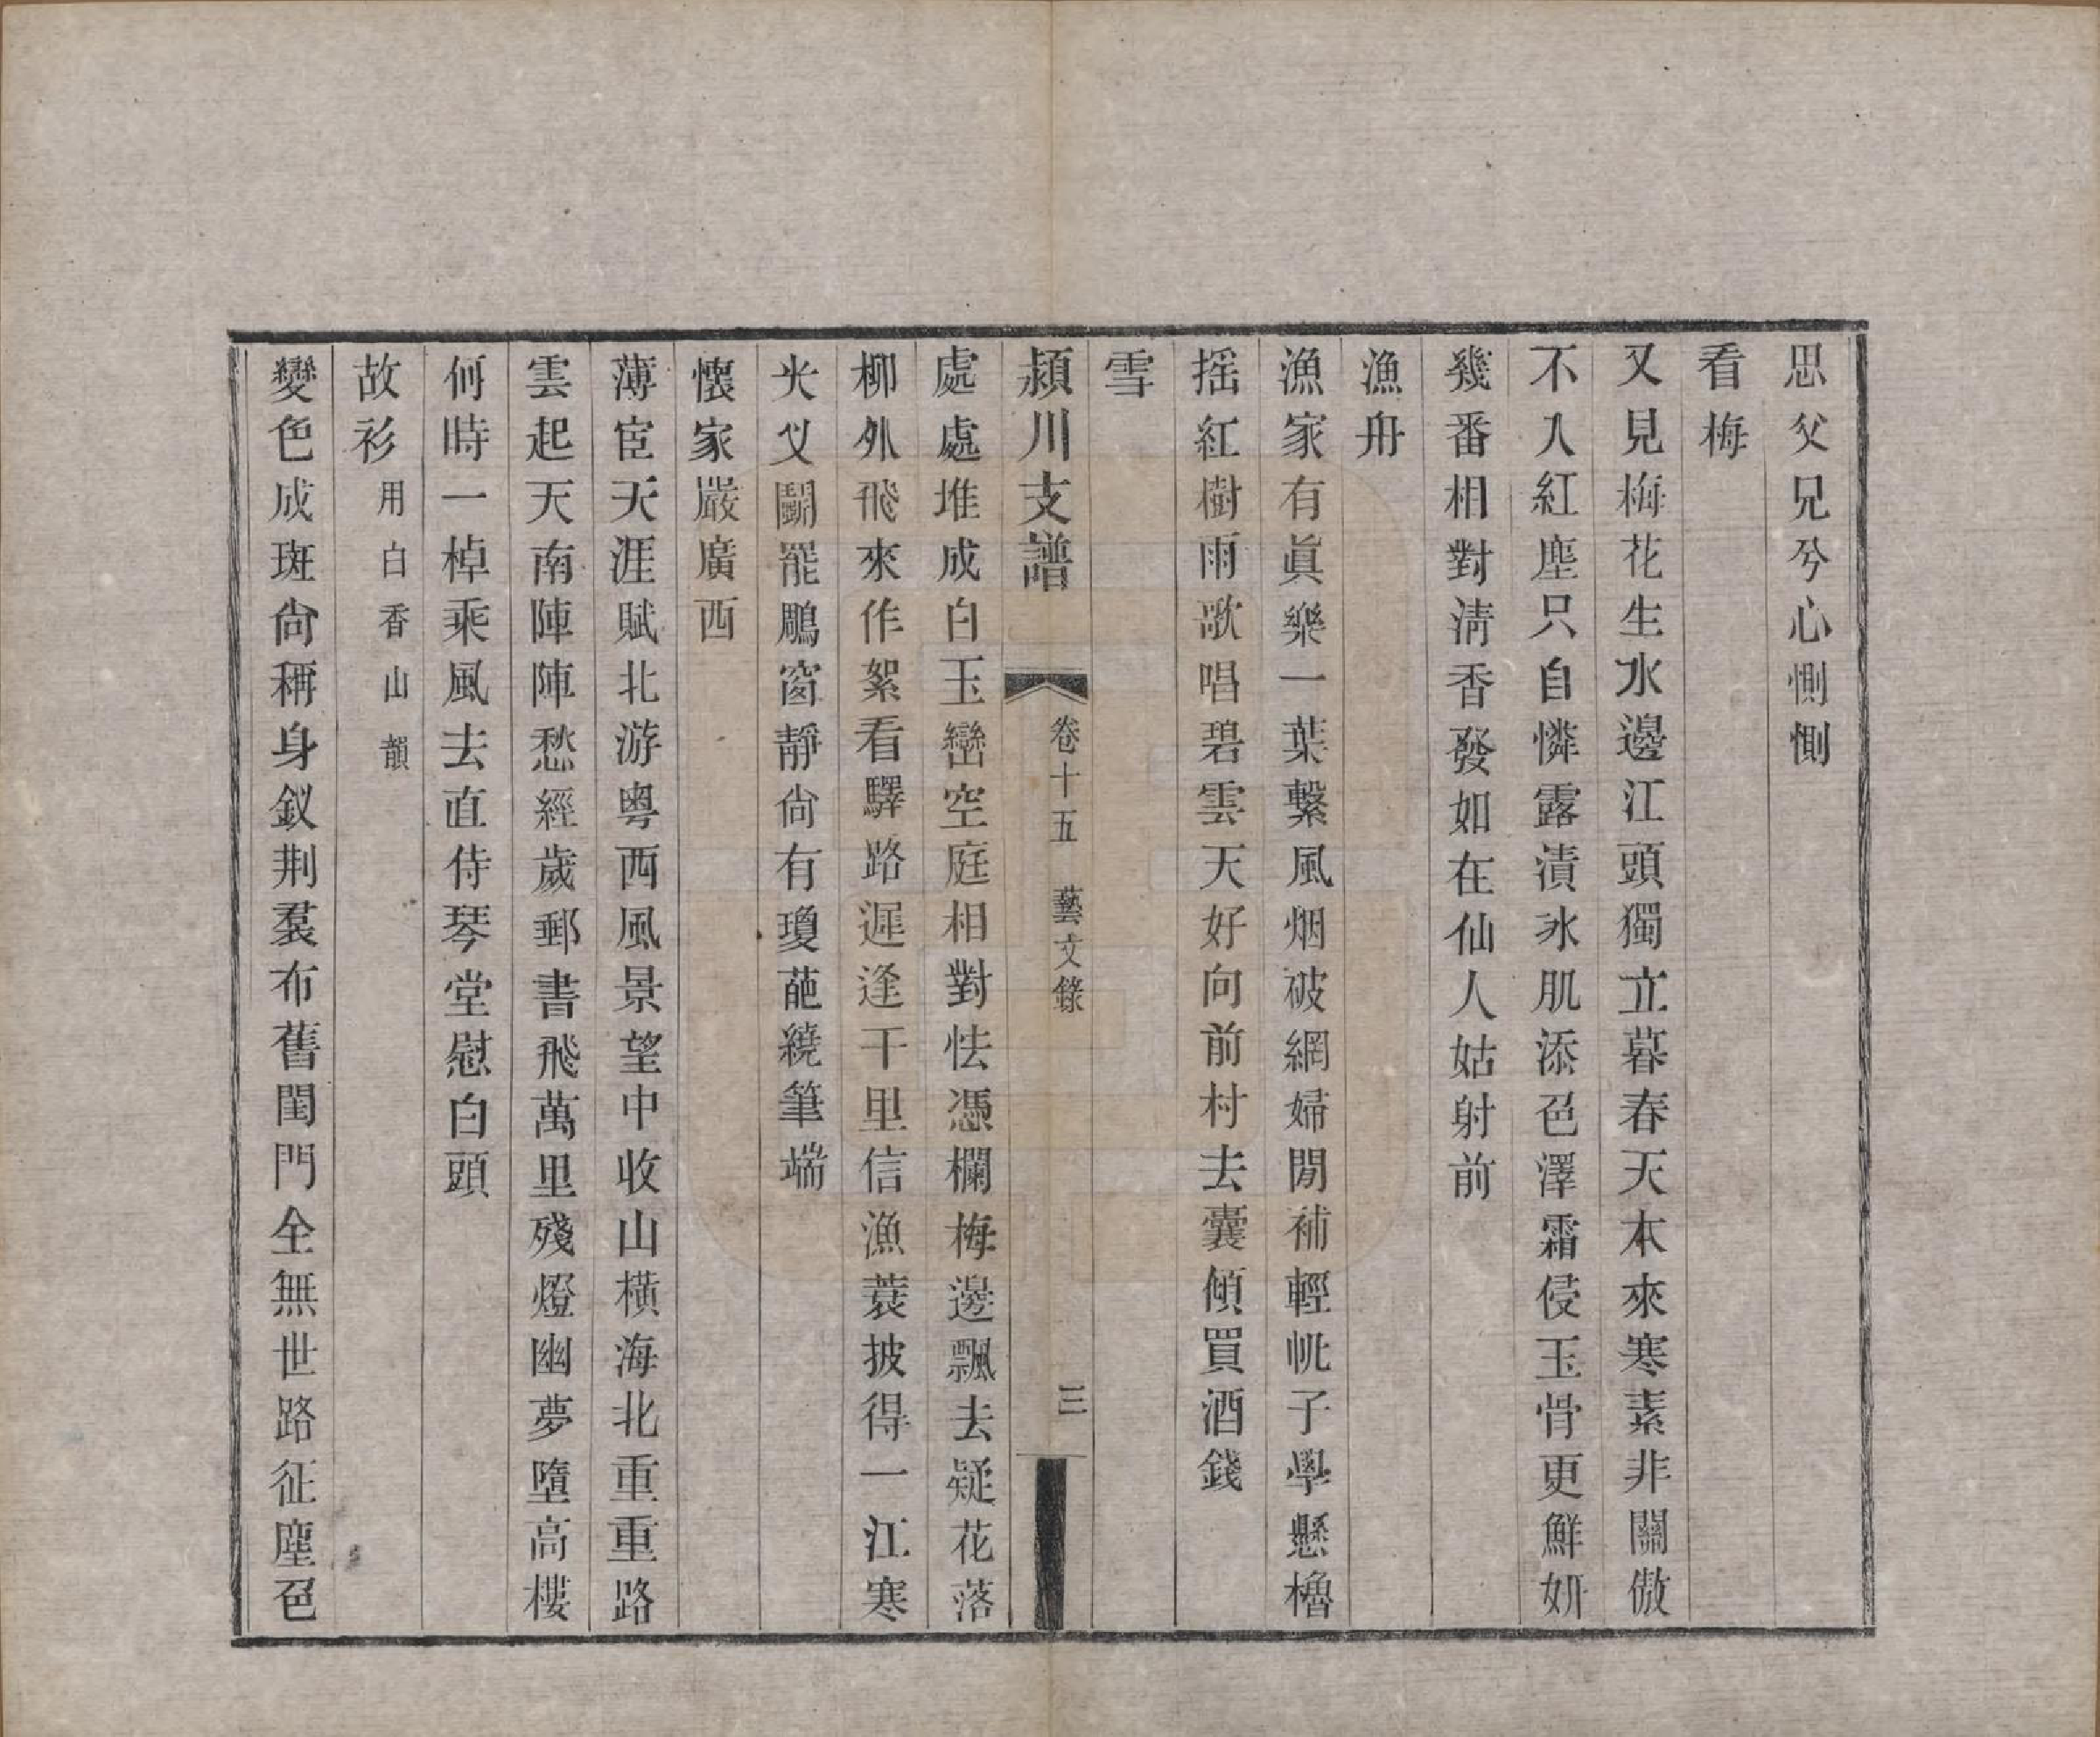 思父兄兮心惻惻
看梅
又見梅花生水邊江頭獨立暮春天本來寒素非關傲
不入紅塵只自憐露漬氷肌添色澤霜侵玉骨更鮮妍
幾番相對淸香發如在仙人姑射前
漁舟
漁家有眞樂一葉繫風烟破網婦閒補輕帆子學懸櫓
摇紅樹雨歌唱碧雲天好向前村去囊傾買酒錢
雪
潁川支譜
卷十五 藝文錄
三
處處堆成白玉巒空庭相對怯憑欄梅邊飄去疑花落
柳外飛來作絮看驛路遲逢千里信漁蓑披得一江寒
火乂鬭罷鵰窗靜尙有瓊葩繞筆端
懷家嚴廣西
薄宦天涯賦北游粤西風景望中收山橫海北重重路
雲起天南陣陣愁經歲郵書飛萬里殘燈幽夢墮高樓
何時一棹乘風去直侍琴堂慰白頭
故衫 用白香山韻
變色成斑尙稱身釵荆裙布舊閨門全無世路征塵色